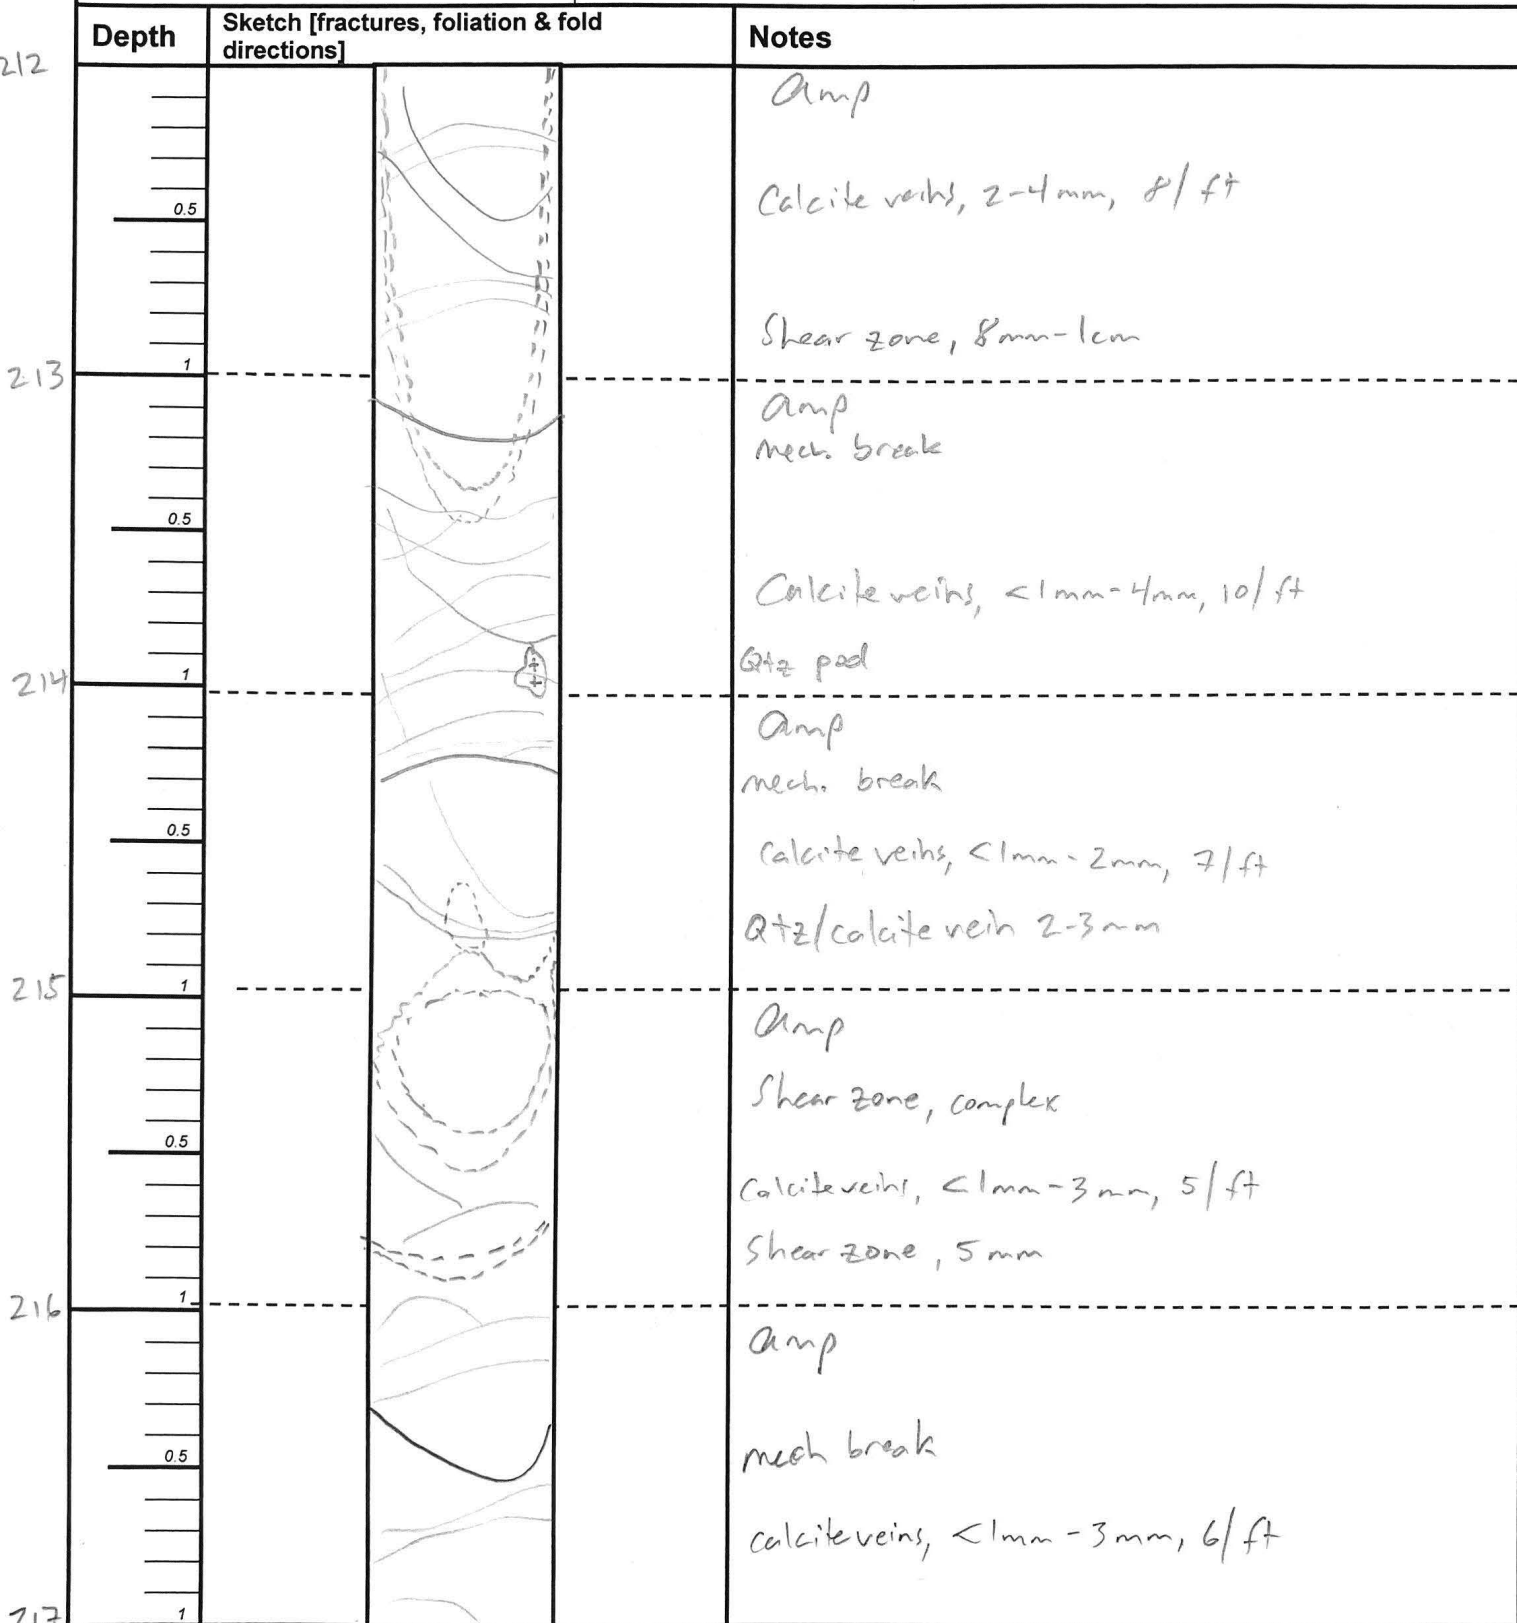 Depth
Sketch [fractures, foliation & fold
directions]
Notes
212
amp
Calcite veins, 2-4mm, 8/ft
0.5
Shear zone, 8mm-1cm
213
1
amp
mech. break
0.5
Calcite veins, <1mm-4mm, 10/ft
Qtz pod
214
1
amp
mech. break
0.5
Calcite veins, <1mm-2mm, 7/ft
Qtz/calcite vein 2-3mm
215
1
amp
Shear zone, complex
0.5
Calcite veins, <1mm-3mm, 5/ft
Shear zone, 5mm
216
1
amp
mech break
0.5
calcite veins, <1mm-3mm, 6/ft
217
1